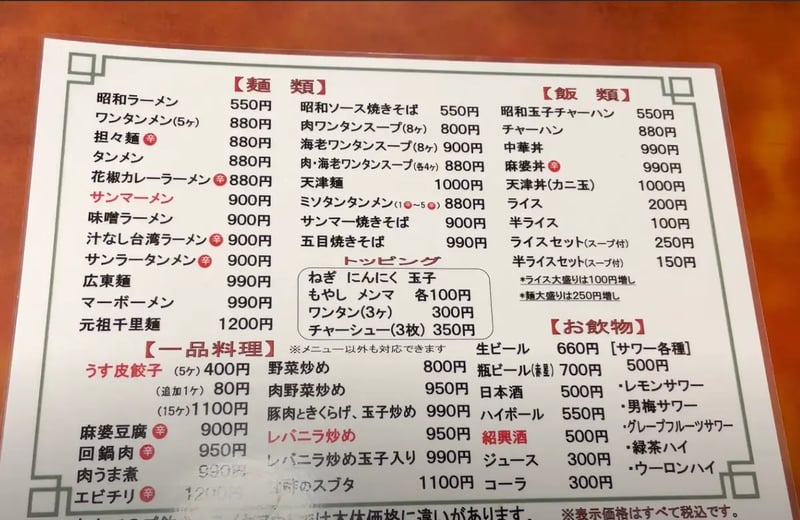 【麺 類】
昭和ラーメン 550円
ワンタンメン(5ヶ) 880円
担々麺 辛 880円
タンメン 880円
花椒カレーラーメン 辛 880円
サンマーメン 900円
味噌ラーメン 900円
汁なし台湾ラーメン 辛 900円
サンラータンメン 辛 900円
広東麺 990円
マーボーメン 990円
元祖千里麺 1200円
昭和ソース焼きそば 550円
肉ワンタンスープ(8ヶ) 800円
海老ワンタンスープ(8ヶ) 900円
肉・海老ワンタンスープ(各4ヶ) 880円
天津麺 1000円
ミソタンタンメン(1辛～5辛) 880円
サンマー焼きそば 900円
五目焼きそば 990円
トッピング
ねぎ にんにく 玉子
もやし メンマ 各100円
ワンタン(3ヶ) 300円
チャーシュー(3枚) 350円
【飯 類】
昭和玉子チャーハン 550円
チャーハン 880円
中華丼 990円
麻婆丼 辛 990円
天津丼(カニ玉) 1000円
ライス 200円
半ライス 100円
ライスセット(スープ付) 250円
半ライスセット(スープ付) 150円
*ライス大盛りは100円増し
*麺大盛りは250円増し
【一品料理】 ※メニュー以外も対応できます
うす皮餃子 (5ヶ) 400円
(追加1ヶ) 80円
(15ヶ) 1100円
麻婆豆腐 辛 900円
回鍋肉 辛 950円
肉うま煮 990円
エビチリ 辛 1200円
野菜炒め 800円
肉野菜炒め 950円
豚肉ときくらげ、玉子炒め 990円
レバニラ炒め 950円
レバニラ炒め玉子入り 990円
酢のスブタ 1100円
【お飲物】
生ビール 660円
瓶ビール 700円
日本酒 500円
ハイボール 550円
紹興酒 500円
ジュース 300円
コーラ 300円
[サワー各種]
500円
・レモンサワー
・男梅サワー
・グレープフルーツサワー
・緑茶ハイ
・ウーロンハイ
は本体価格に違いがあります。
※表示価格はすべて税込です。